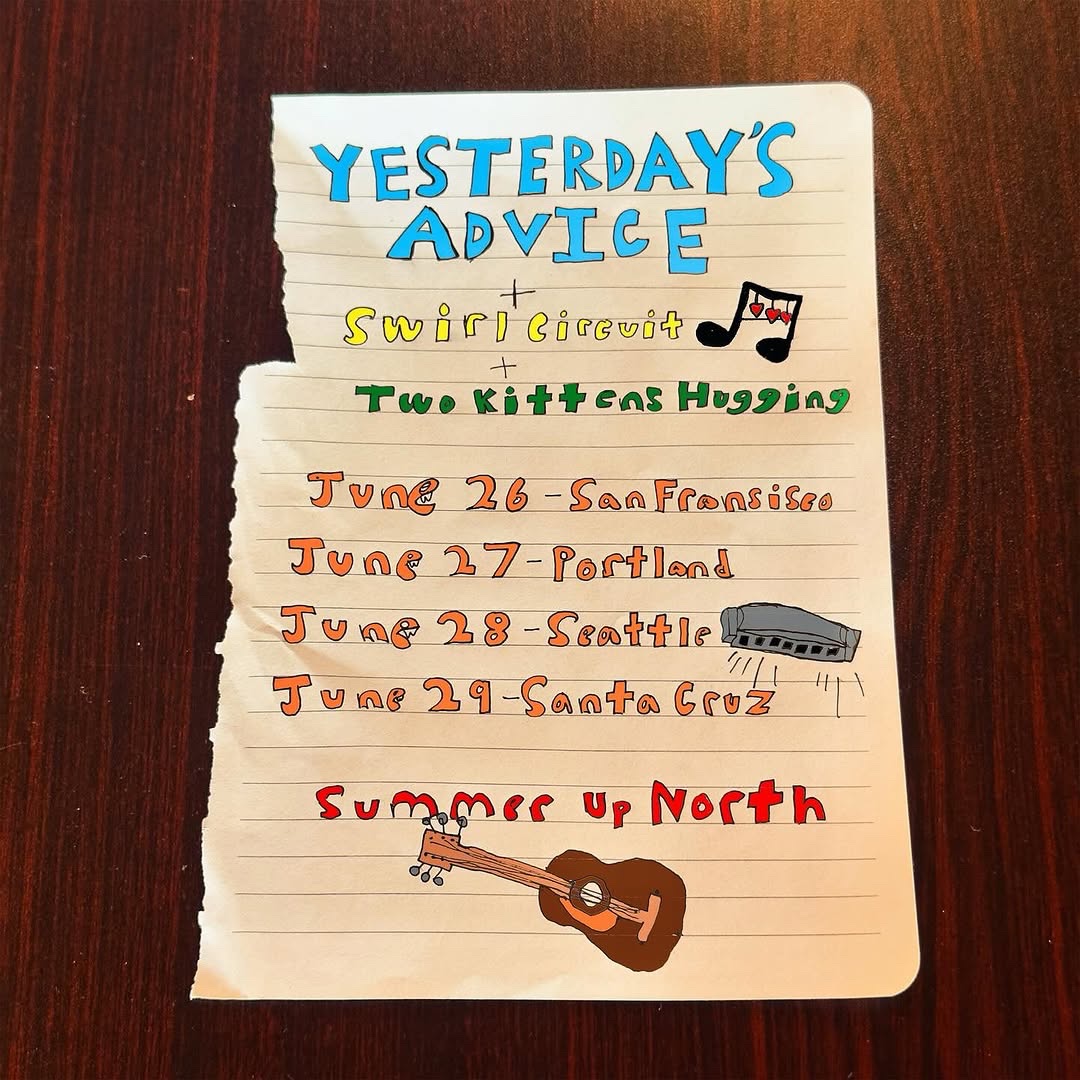 YESTERDAY'S
ADVICE
+
Swirl Circuit
+
Two Kittens Hugging
June 26 - San Fransisco
June 27 - Portland
June 28 - Seattle
June 29 - Santa Cruz
Summer Up North